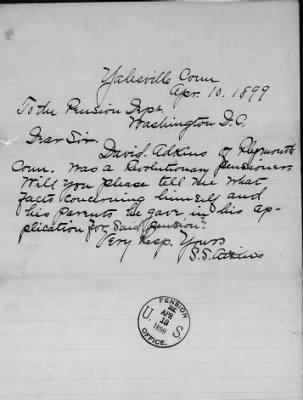 Yalesville Conn
Apr. 10. 1899
To the Pension Dept
Washington D.C.
Dear Sir.
David Adkins of Plymouth
Conn. was a Revolutionary pensioner
Will you please tell me what
facts concerning himself and
his parents he gave in his ap-
plication for said pension.
Very Resp. Yours
S.S. Adkins
PENSION
U. APR S.
1899
OFFICE.